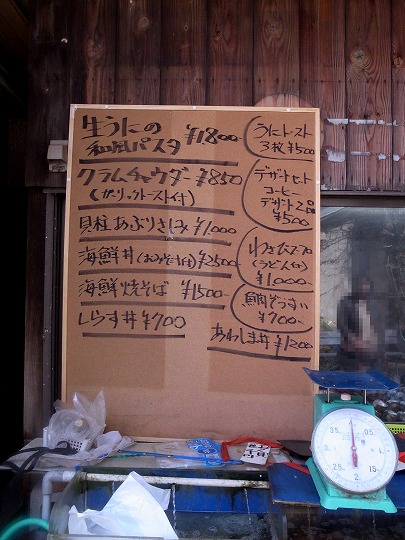 生うにの
和風パスタ ¥1800-
クラムチャウダー ¥850
(ガーリックトースト付)
貝柱あぶりさしみ ¥1,000
海鮮丼(おみそ汁付)¥2500
海鮮焼そば ¥1500-
しらす丼 ¥700
うにトースト
3枚 ¥500
デザートセット
コーヒー
デザート2品
¥500
(うどん付)
¥1000
鯛ぞうすい
¥700-
あわしま丼 ¥1200